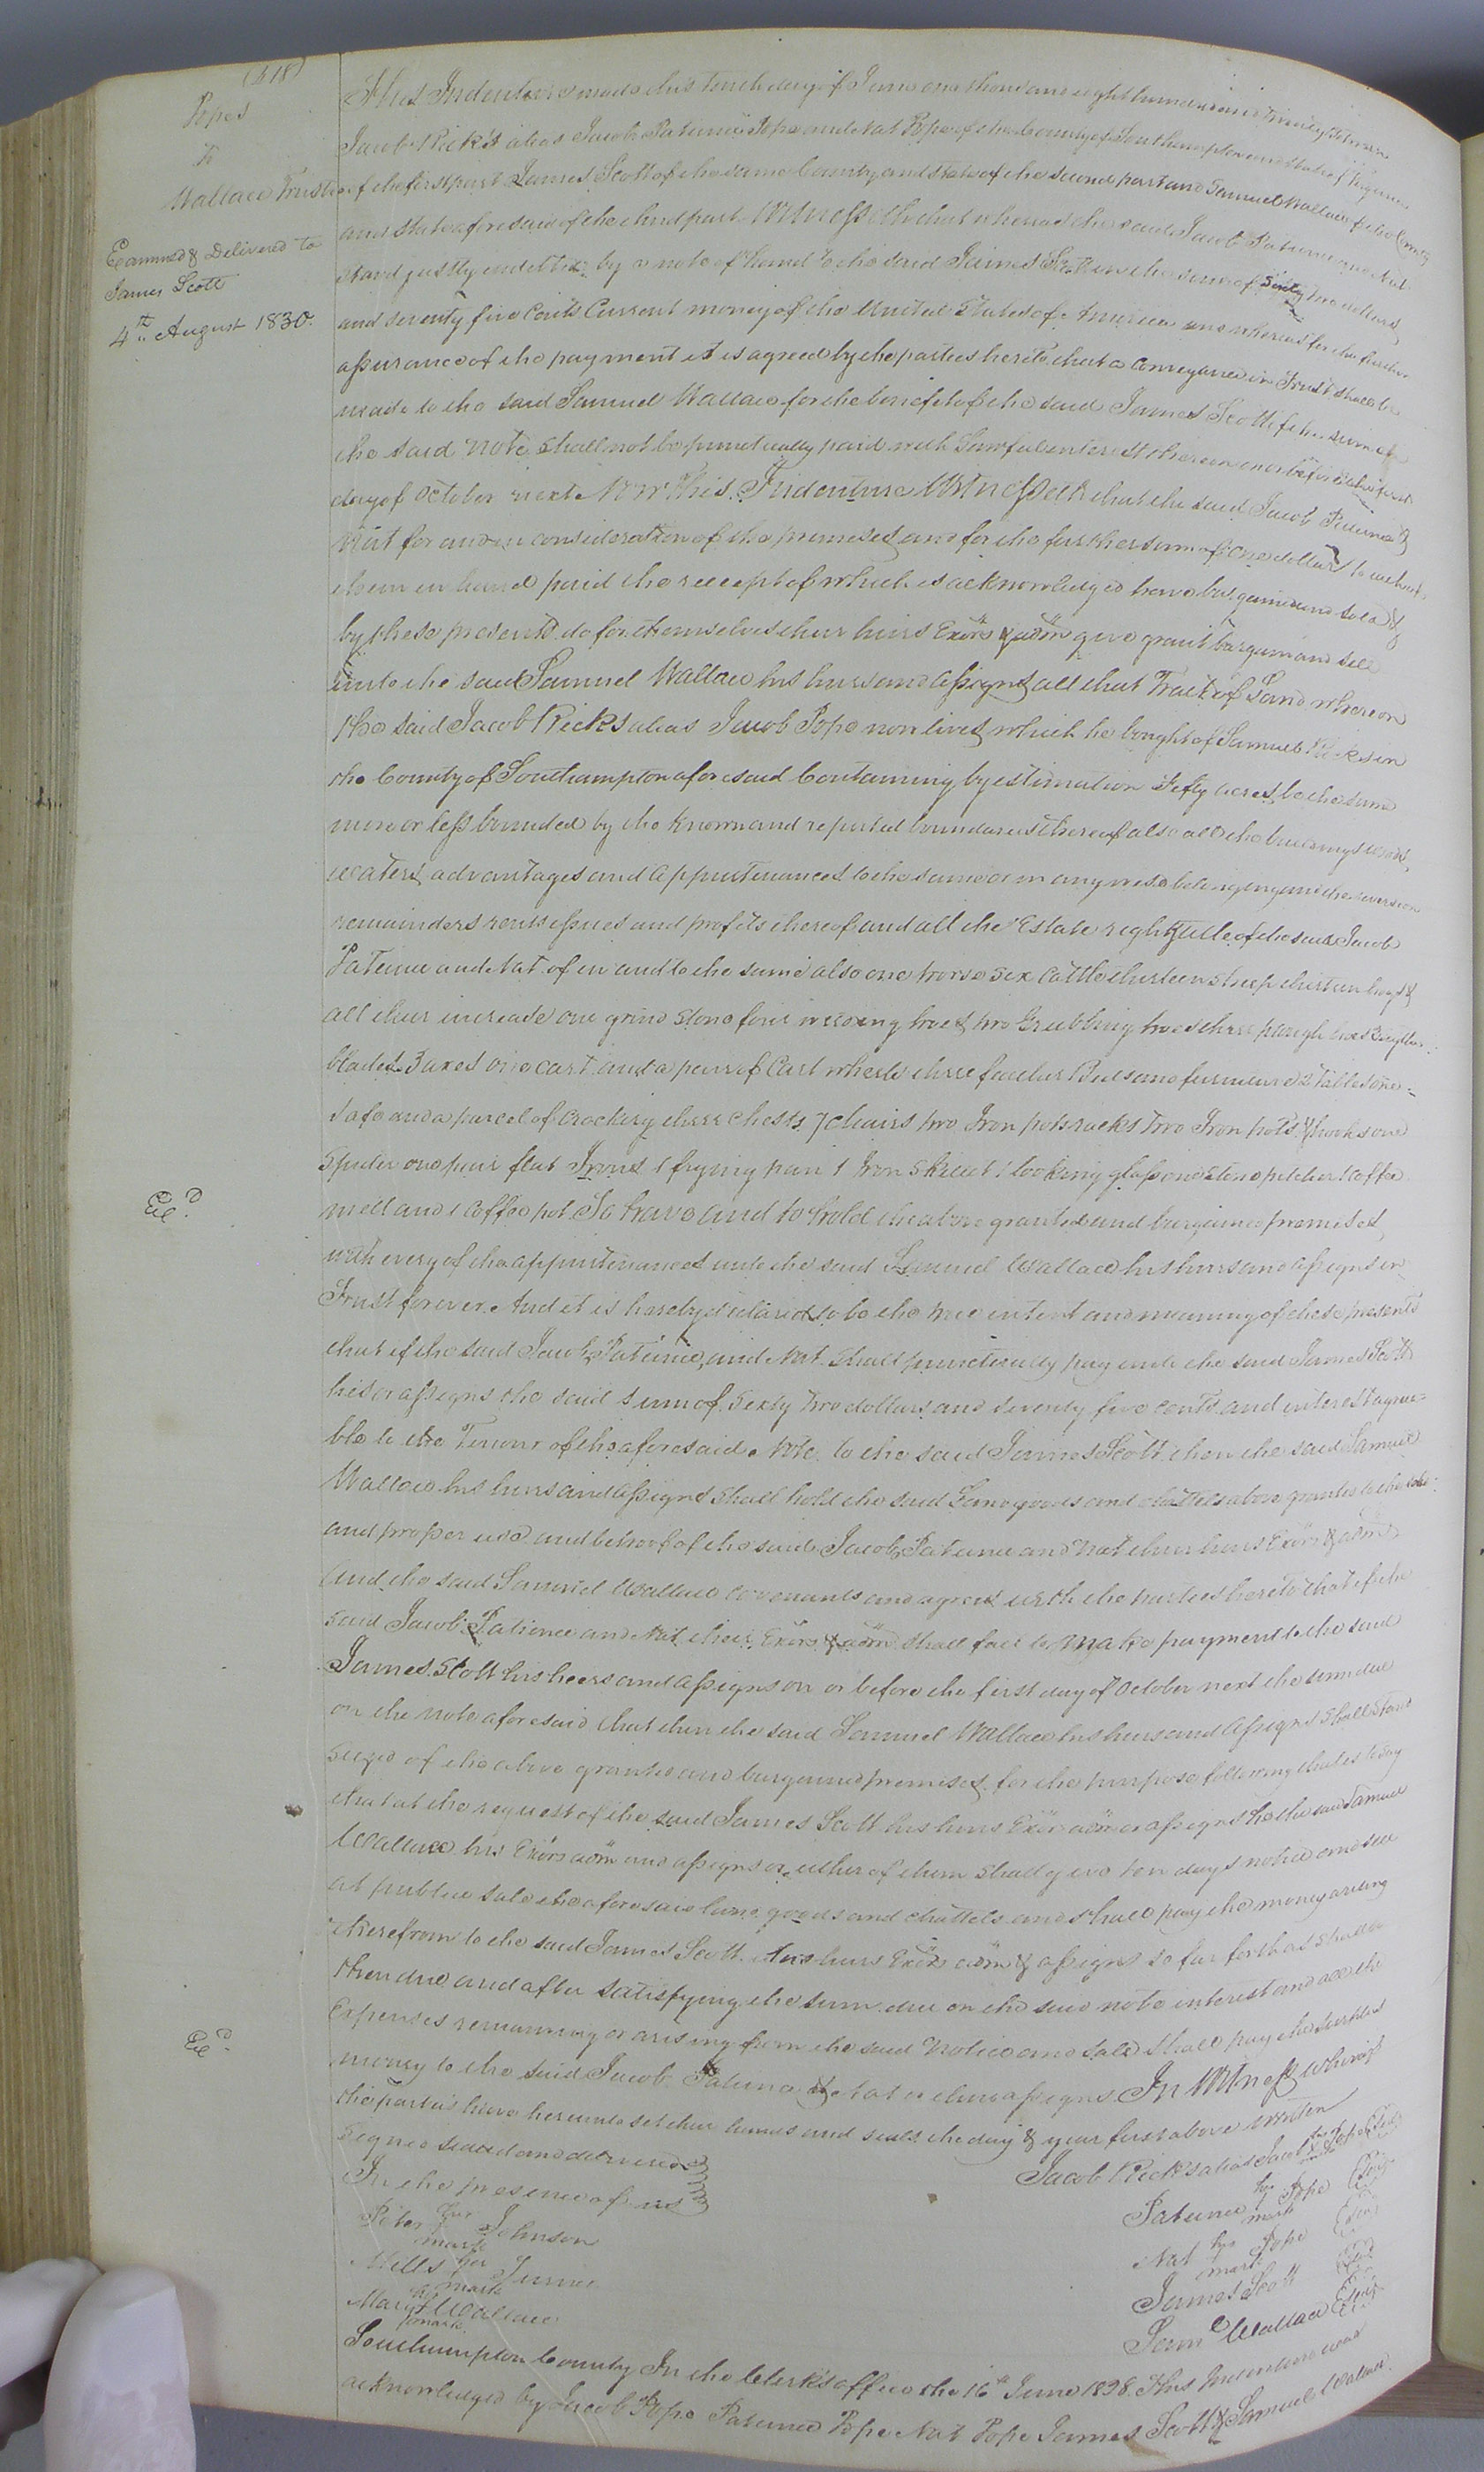 (418)
Popes
To
Wallace Trustee
Examined & Delivered to
James Scott
4th August 1830.
This Indenture made this tenth day of June one thousand eight hundred and twenty Between
Jacob Ricks alias Jacob Patience Pope and Nat Pope of the County of Southampton and State of Virginia
of the first part James Scott of the same County and State of the second part and Samuel Wallace of the County
and State aforesaid of the third part Witnesseth that whereas the said Jacob Patience and Nat
stand justly indebted by a note of hand to the said James Scott in the sum of Sixty two dollars,
and seventy five Cents Current money of the United States of America and whereas for the further
assurance of the payment it is agreed by the parties hereto that a Conveyance in Trust shall be
made to the said Samuel Wallace for the benefit of the said James Scott if the sum of
the said note shall not be punctually paid with Lawful interest thereon on or before the first
day of October next Now this Indenture Witnesseth that the said Jacob Patience &
Nat for and in consideration of the premises and for the further sum of one dollar to each of
them in hand paid the receipt of which is acknowledged have bargained and sold &
by these presents do for themselves their heirs Exōrs & adm̄ give grant bargain and sell
unto the said Samuel Wallace his heirs and assigns all that Tract of Land whereon
the said Jacob Ricks alias Jacob Pope now lives which he bought of Samuel Ricks in
the County of Southampton aforesaid Containing by estimation Fifty acres be the same
more or less bounded by the known and reputed boundaries thereof also all the buildings woods,
waters, advantages and appurtenances to the same or in any wise belonging and the reversion
remainders rents issues and profits thereof and all the Estate right & title of the said Jacob
Patience and Nat of in and to the same also one horse six Cattle thirteen sheep thirteen hogs &
all their increase one grind stone four weeding hoes two Grubbing hoes three plough hoes
blades 3 axes one cart and a pair of Cart wheels three feather Beds and furniture 2 Tables one
safe and a parcel of Crockery three Chests 7 chairs two Iron potracks Two Iron pots & hooks one
Spider one pair flat Irons 1 frying pan 1 Iron Skillet 1 looking glass one Stone pitcher 1 Coffee
mill and 1 Coffee pot To have and to hold the above granted and bargained premises,
with every of the appurtenances unto the said Samuel Wallace his heirs and assigns in
Trust forever. And it is hereby declared to be the true intent and meaning of these presents
that if the said Jacob, Patience, and Nat. shall punctually pay unto the said James Scott
his or assigns the said sum of Sixty two dollars and seventy five cents and interest agreea=
ble to the Tenour of the aforesaid Note to the said James Scott then the said Samuel
Wallace his heirs and assigns shall hold the said Land goods and chattels above granted to the sole
and proper use and behoof of the said Jacob, Patience and Nat their heirs Exōrs & adm̄
And the said Samuel Wallace covenants and agrees with the parties hereto that if the
said Jacob Patience and Nat their Exōrs & adm̄ shall fail to make payment to the said
James Scott his heirs and assigns on or before the first day of October next the sum due
on the note aforesaid that then the said Samuel Wallace his heirs and assigns shall stand
seized of the above granted and bargained premises for the purpose following that is to say
that at the request of the said James Scott his heirs Exōrs adm̄ or assigns he the said Samuel
Wallace his Exōrs adm̄ and assigns or either of them shall give ten days notice and sell
at public sale the aforesaid land goods and chattels and shall pay the money arising
therefrom to the said James Scott his heirs Exōrs adm̄ & assigns so far forth as shall be
then due and after satisfying the sum due on the said note interest and all the
Expenses remaining or arising from the said Notice and sale shall pay the surplus
money to the said Jacob Patience & Nat or their assigns. In Witness whereof
the parties have hereunto set their hands and seals the day & year first above written
Signed sealed and delivered
In the presence of us
Jacob Ricks alias Jacob his mark Pope (Seal)
Patience her mark Pope (Seal)
Nat his mark Pope (Seal)
James Scott (Seal)
Saml Wallace (Seal)
Peter his mark Johnson
Mills his mark Turner
Mary her mark Wallace
Southampton County In the Clerk's office the 16th June 1828. This Indenture was
acknowledged by Jacob Pope Patience Pope Nat Pope James Scott & Samuel Wallace.
Exd.
Exd.